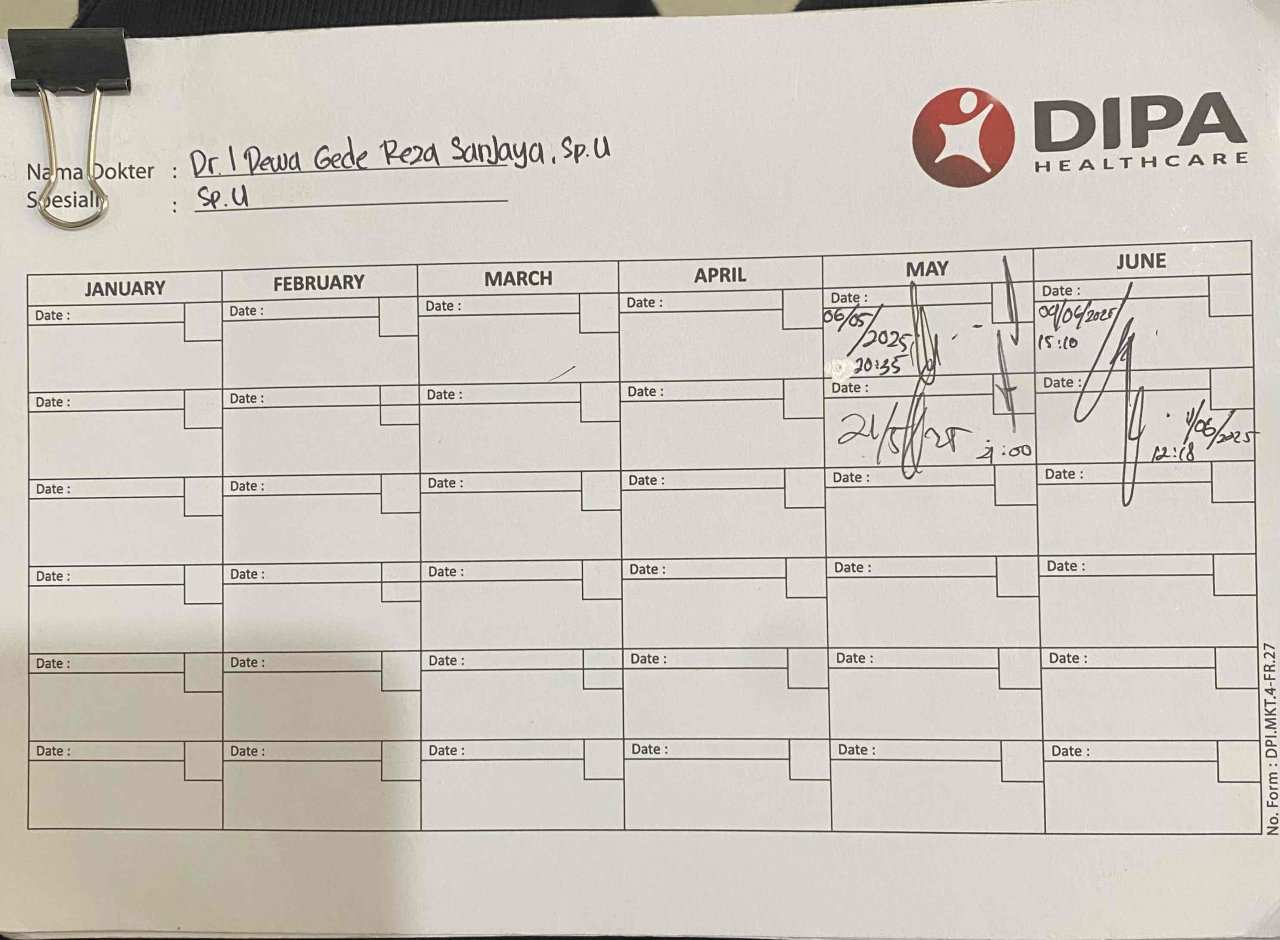 DIPA
HEALTHCARE
Nama Dokter : Dr. I Dewa Gede Reza Sanjaya, Sp.U
: Sp.U
JANUARY FEBRUARY MARCH APRIL MAY JUNE
Date : Date : Date : Date : Date : Date :
06/05/2025
20:35
15:10
Date : Date : Date : Date : Date : Date :
21/5/25
/06/2025
12:18
Date : Date : Date : Date : Date : Date :
Date : Date : Date : Date : Date : Date :
Date : Date : Date : Date : Date : Date :
Date : Date : Date : Date : Date : Date :
No. Form : DPI.MKT.4-FR.27